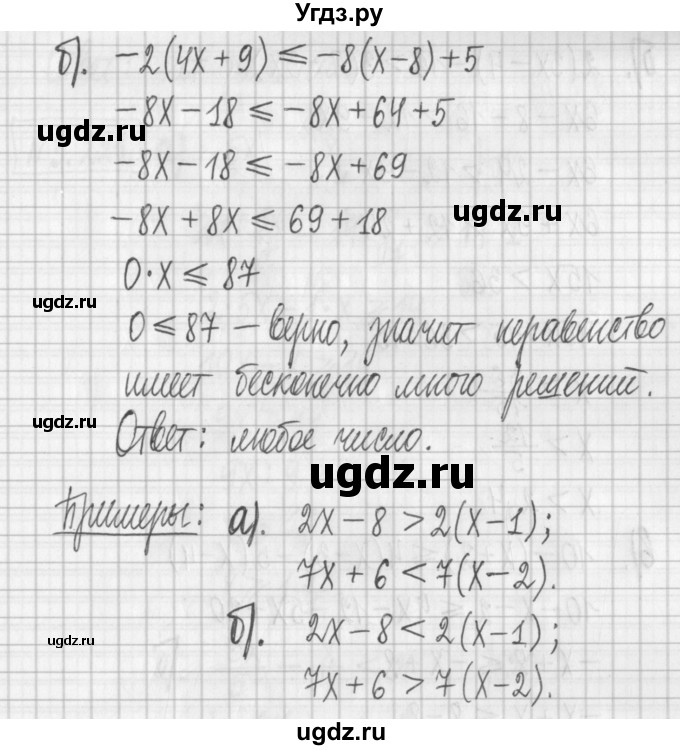 Угдз.ру
б). -2(4x+9) ⩽ -8(x-8)+5
-8x-18 ⩽ -8x+64+5
ugdz.ru
-8x-18 ⩽ -8x+69
-8x+8x ⩽ 69+18
ugdz.ru
0·x ⩽ 87
ugdz.ru
0 ⩽ 87 – верно, значит неравенство
имеет бесконечно много решений.
ugdz.ru
Ответ: любое число.
ugdz.ru
Примеры: а). 2x-8 > 2(x-1);
7x+6 < 7(x-2).
ugdz.ru
б). 2x-8 < 2(x-1);
7x+6 > 7(x-2).
ugdz.ru
ugdz.ru